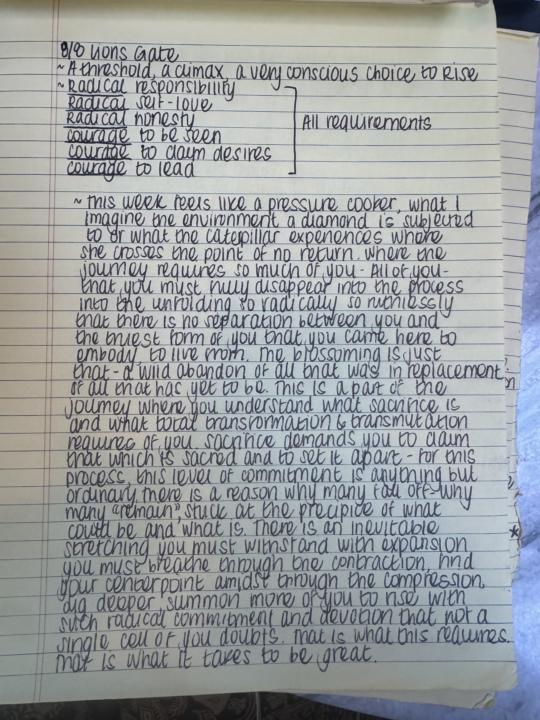 8/8 Lions Gate
~ A threshold, a climax, a very conscious choice to Rise
~ Radical responsibility
Radical self-love
Radical honesty
courage to be seen
courage to claim desires
courage to lead
All requirements
~ this week feels like a pressure cooker, what I
imagine the environment a diamond is subjected
to or what the caterpillar experiences where
she crosses the point of no return. where the
journey requires so much of you - All of you -
that you must fully disappear into the process
into the unfolding so radically so ruthlessly
that there is no separation between you and
the truest form of you that you came here to
embody, to live from. The blossoming is just
that - a wild abandon of all that was in replacement
of all that has yet to be. This is a part of the
journey where you understand what sacrifice is
and what total transformation & transmutation
requires of you. sacrifice demands you to claim
that which is sacred and to set it apart - for this
process, this level of commitment is anything but
ordinary. there is a reason why many fall off - why
many "remain", stuck at the precipice of what
could be and what is. There is an inevitable
stretching you must withstand with expansion
you must breathe through the contraction, find
your centerpoint amidst through the compression,
dig deeper, summon more of you to rise with
such radical commitment and devotion that not a
single cell of you doubts. That is what this requires.
That is what it takes to be great.